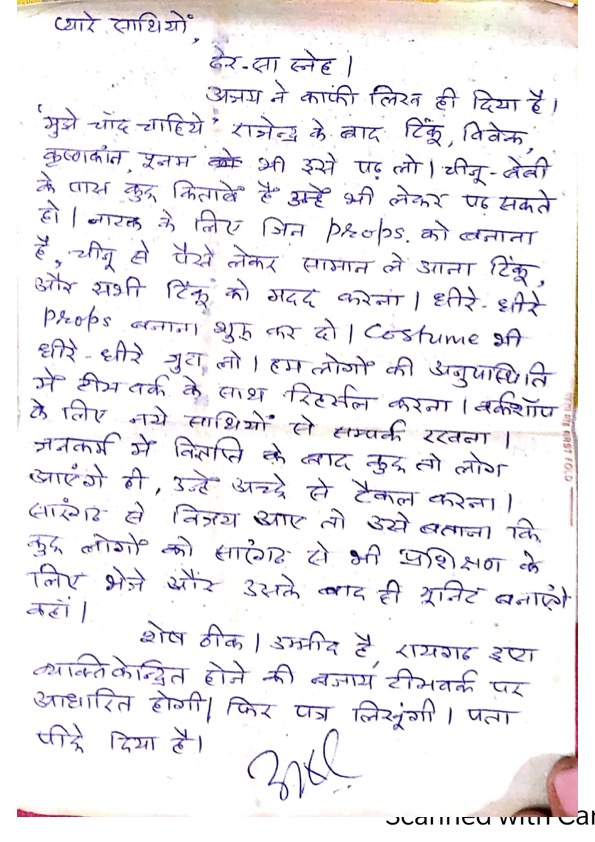 प्यारे साथियों,
ढेर-सा स्नेह।
अजय ने काफी लिख ही दिया है।
'मुझे चाँद चाहिये' राजेन्द्र के बाद टिंकू, विवेक,
कृष्णकांत, पूनम भी इसे पढ़ लो। चीनू-बेबी
के पास कुछ किताबें हैं उन्हें भी लेकर पढ़ सकते
हो। नाटक के लिए जिन props. को बनाना
है, चीनू से पैसे लेकर सामान ले आना टिंकू,
और सभी टिंकू को मदद करेना। धीरे-धीरे
props बनाना शुरू कर दो। Costume भी
धीरे-धीरे जुटा लो। हम लोगों की अनुपस्थिति
में टीमवर्क के साथ रिहर्सल करना। वर्कशॉप
के लिए नये साथियों से सम्पर्क रखना।
जनकर्म में विज्ञप्ति के बाद कुछ तो लोग
आएंगे ही, उन्हें अच्छे से टैकल करना।
सारंगढ से विजय आए तो उसे बताना कि
कुछ लोगों को सारंगढ से भी प्रशिक्षण के
लिए भेजे और उसके बाद ही यूनिट बनाएंगे
वहाँ।
शेष ठीक। उम्मीद है, रायगढ इप्टा
व्यक्तिकेन्द्रित होने की बजाय टीमवर्क पर
आधारित होगी। फिर पत्र लिखूंगी। पता
पीछे दिया है।
FIRST FOLD
Scanned with Car